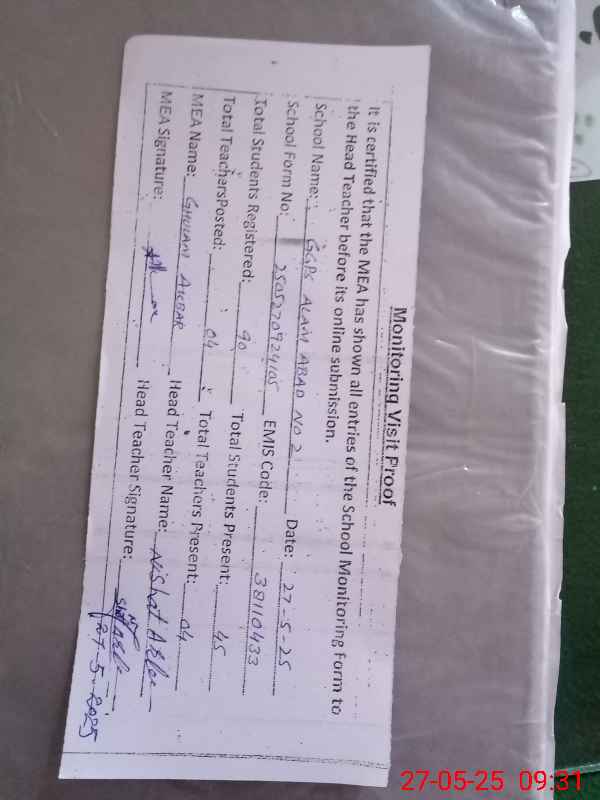 Monitoring Visit Proof
It is certified that the MEA has shown all entries of the School Monitoring Form to
the Head Teacher before its online submission.
School Name: GGPS ALAM ABAD NO 2 Date: 27-5-25
School Form No: 2505270924105 EMIS Code: 38110433
Total Students Registered: 90 Total Students Present: 45
Total TeachersPosted: 04 Total Teachers Present: 04
MEA Name: GHULAM AKBAR Head Teacher Name: Nishat
MEA Signature: Head Teacher Signature:
27-5-2025
27-05-25 09:31